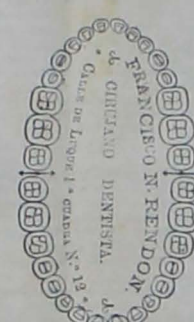 FRANCISCO N. RENDON.
CIRUJANO DENTISTA.
CALLE DE LUQUE 1ª CUADRA N.º 12